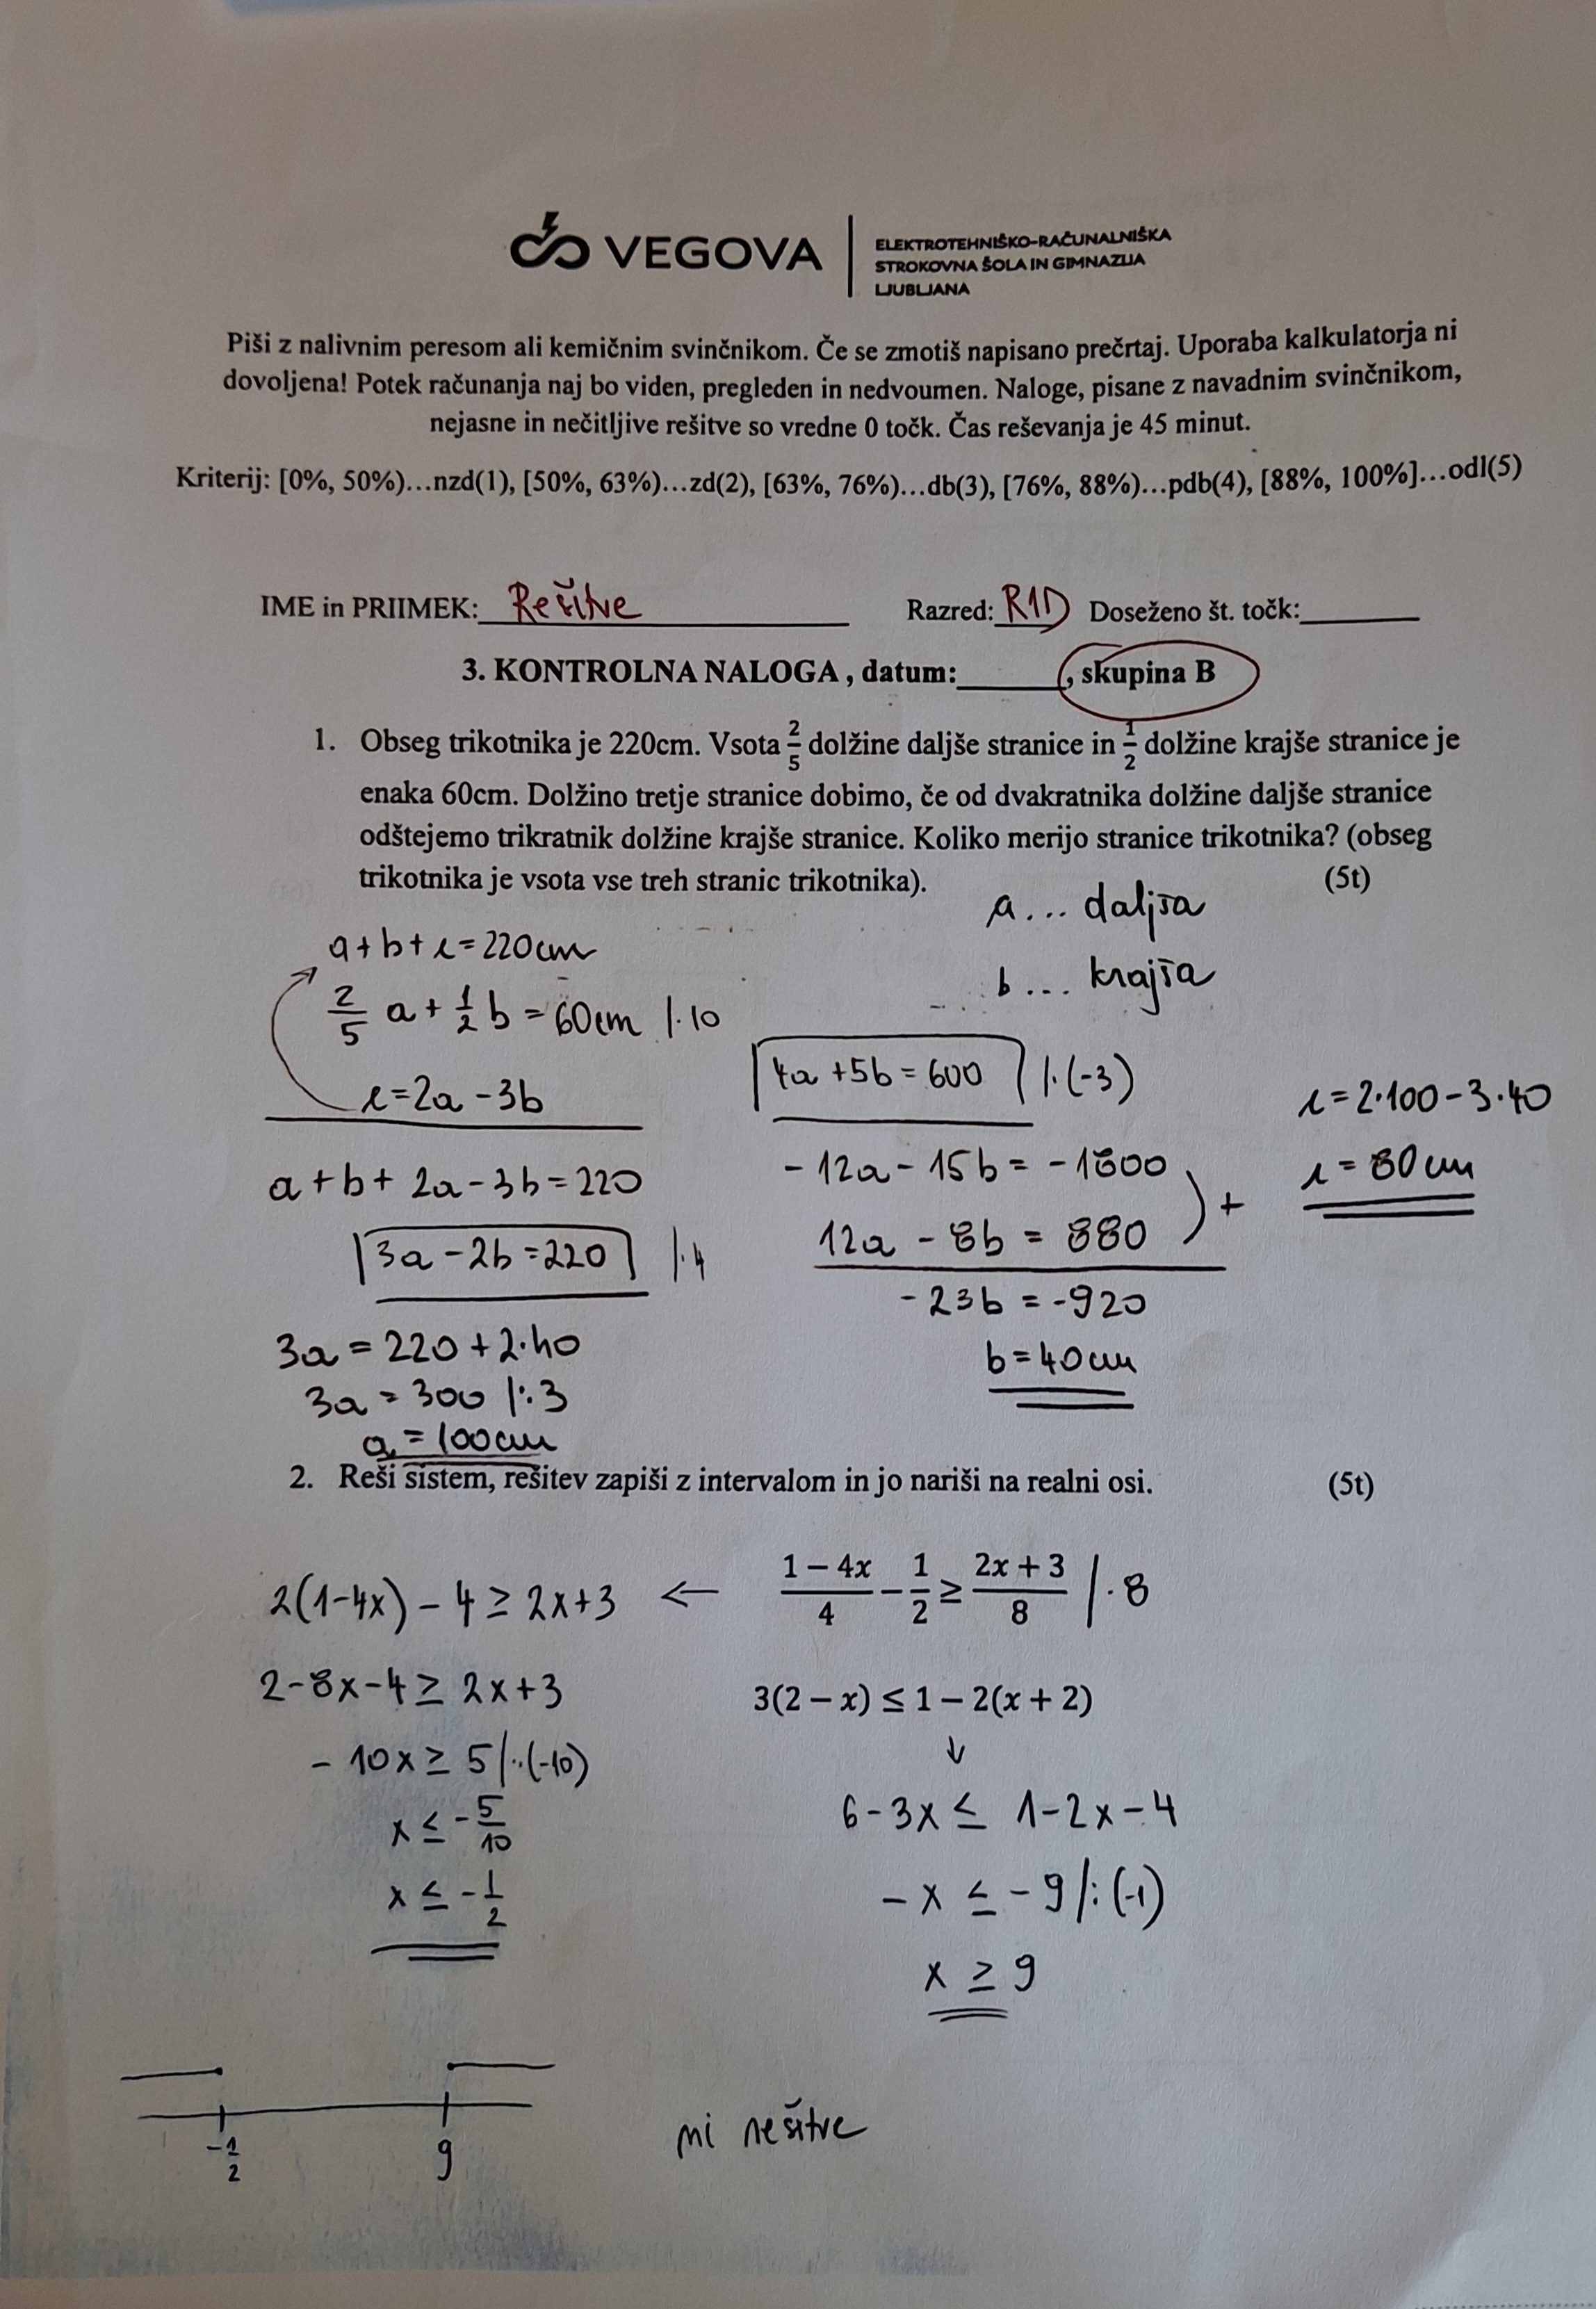 VEGOVA
ELEKTROTEHNIŠKO-RAČUNALNIŠKA
STROKOVNA ŠOLA IN GIMNAZIJA
LJUBLJANA
Piši z nalivnim peresom ali kemičnim svinčnikom. Če se zmotiš napisano prečrtaj. Uporaba kalkulatorja ni
dovoljena! Potek računanja naj bo viden, pregleden in nedvoumen. Naloge, pisane z navadnim svinčnikom,
nejasne in nečitljive rešitve so vredne 0 točk. Čas reševanja je 45 minut.
Kriterij: [0%, 50%)…nzd(1), [50%, 63%)…zd(2), [63%, 76%)…db(3), [76%, 88%)…pdb(4), [88%, 100%]…odl(5)
IME in PRIIMEK: Rešitve Razred: R1D Doseženo št. točk:
3. KONTROLNA NALOGA , datum:______, skupina B
1. Obseg trikotnika je 220cm. Vsota 2/5 dolžine daljše stranice in 1/2 dolžine krajše stranice je
enaka 60cm. Dolžino tretje stranice dobimo, če od dvakratnika dolžine daljše stranice
odštejemo trikratnik dolžine krajše stranice. Koliko merijo stranice trikotnika? (obseg
trikotnika je vsota vse treh stranic trikotnika). (5t)
a... daljša
b... krajša
a+b+c=220cm
2/5 a + 1/2 b = 60cm /·10
c=2a-3b
a+b+2a-3b=220
3a-2b=220 /·4
3a=220+2·40
3a=300 /:3
a=100cm
4a+5b=600 /·(-3)
-12a-15b=-1800
12a-8b=880 +
-23b=-920
b=40cm
c=2·100-3·40
c=80cm
2. Reši sistem, rešitev zapiši z intervalom in jo nariši na realni osi. (5t)
2(1-4x)-4≥2x+3 ← (1-4x)/4 - 1/2 ≥ (2x+3)/8 /·8
2-8x-4≥2x+3
-10x≥5 /:(-10)
x≤-5/10
x≤-1/2
3(2-x)≤1-2(x+2)
↓
6-3x≤1-2x-4
-x≤-9 /:(-1)
x≥9
-1/2 9
ni rešitve